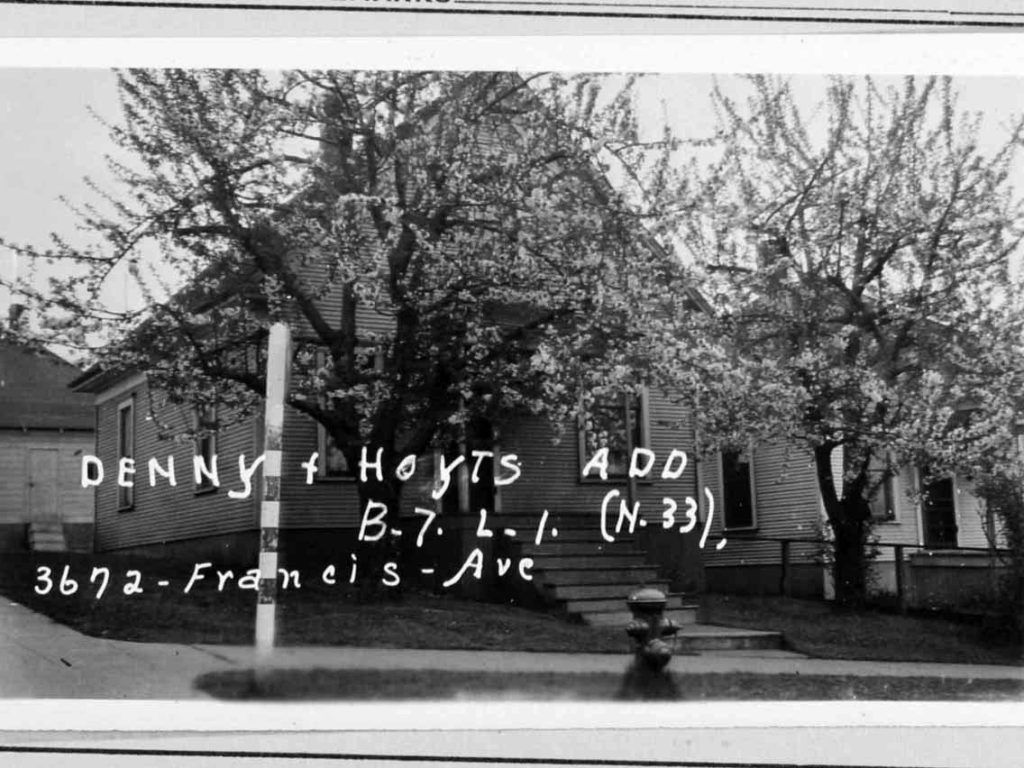 DENNY + HOYTS ADD
B-7. L-1. (N. 33),
3672-Francis-Ave